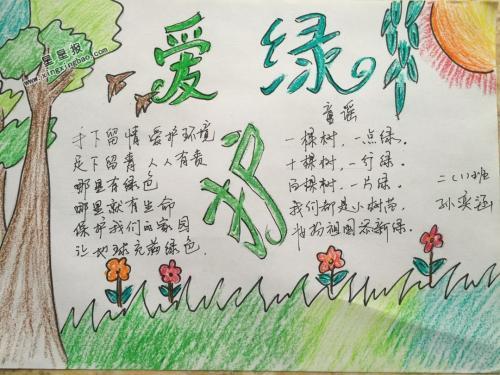 星星报
www.xingxingbao.com
爱绿
护
手下留情 爱护环境
足下留青 人人有责
哪里有绿色
哪里就有生命
保护我们的家园
让地球充满绿色
童谣
一棵树，一点绿。
十棵树，一行绿。
百棵树，一片绿。
我们都是小树苗，
为祖国添新绿。
二（1）班
孙奕涵